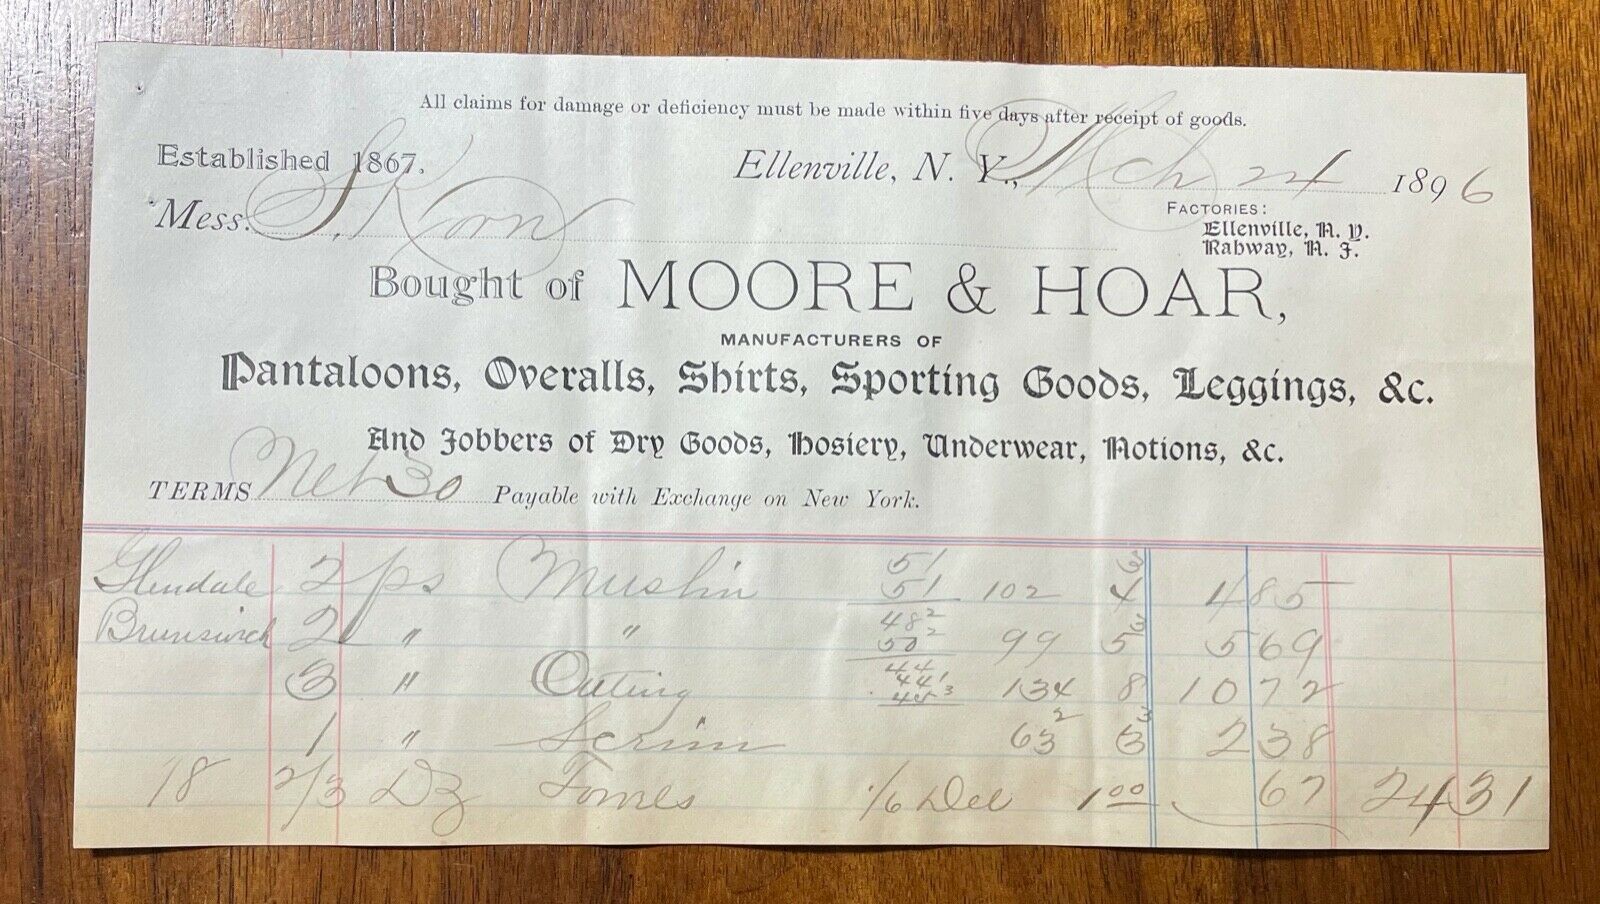 All claims for damage or deficiency must be made within five days after receipt of goods.
Established 1867.
Ellenville, N. Y., Mch 24 1896
Mess. S. Korn
FACTORIES:
Ellenville, N. Y.
Rahway, N. J.
Bought of MOORE & HOAR,
MANUFACTURERS OF
Pantaloons, Overalls, Shirts, Sporting Goods, Leggings, &c.
And Jobbers of Dry Goods, Hosiery, Underwear, Notions, &c.
TERMS Net 30 Payable with Exchange on New York.
Glendale 2 ps Muslin 51 51 102 4 3 4 85
Brunswick 2 " " 48 2 50 2 99 5 3 5 69
3 " Outing 44 44 1 45 3 134 8 10 72
1 " Scrim 63 2 3 3 2 38
18 2/3 Dz 1/6 1 00 67 24 31